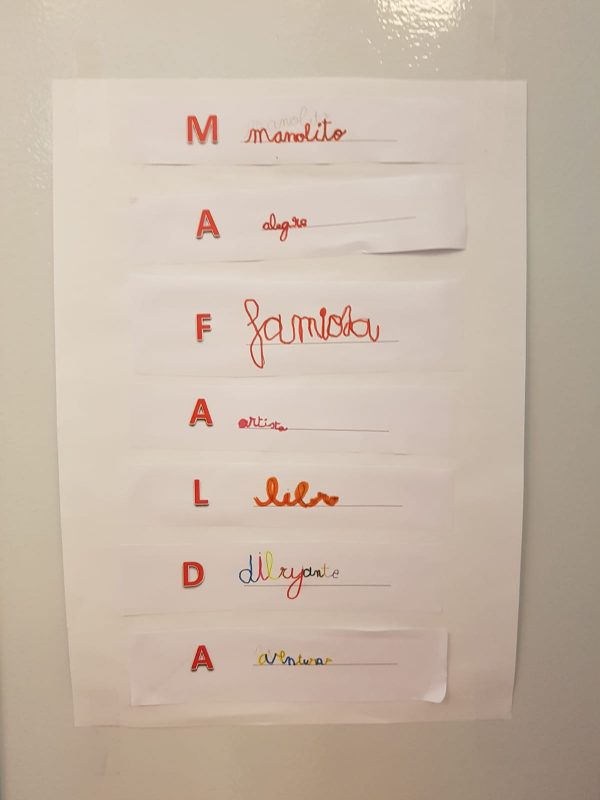 M manolito
A alegre
F famiosa
A artista
L libro
D
A aventura